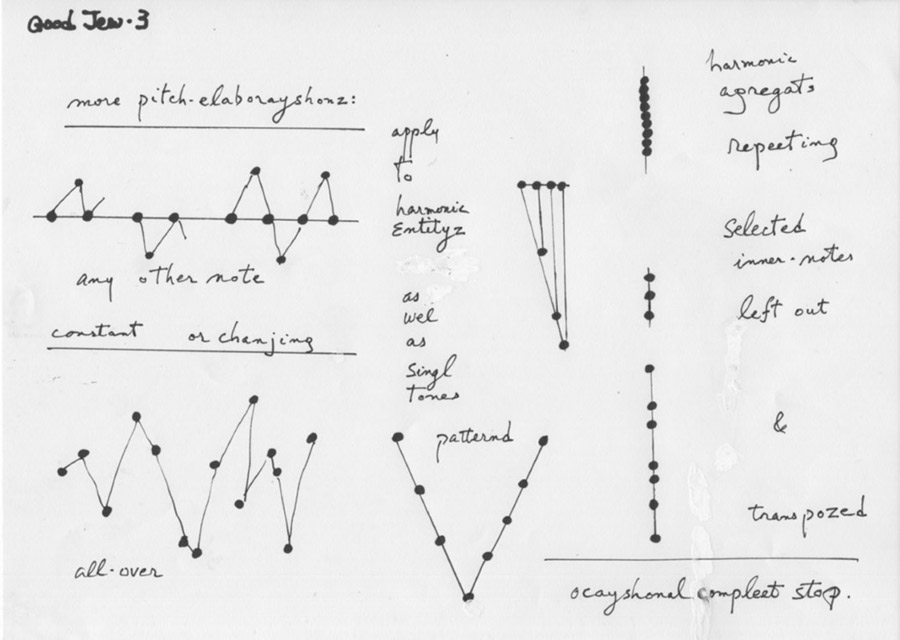 Good Jew·3
more pitch-elaborayshonz:
any other note
constant or chanjing
all-over
apply
to
harmonic
Entityz
as
wel
as
singl
Tones
patternd
harmonic
agregats
repeeting
Selected
inner-notes
left out
&
transpozed
ocayshonal compleet stop.